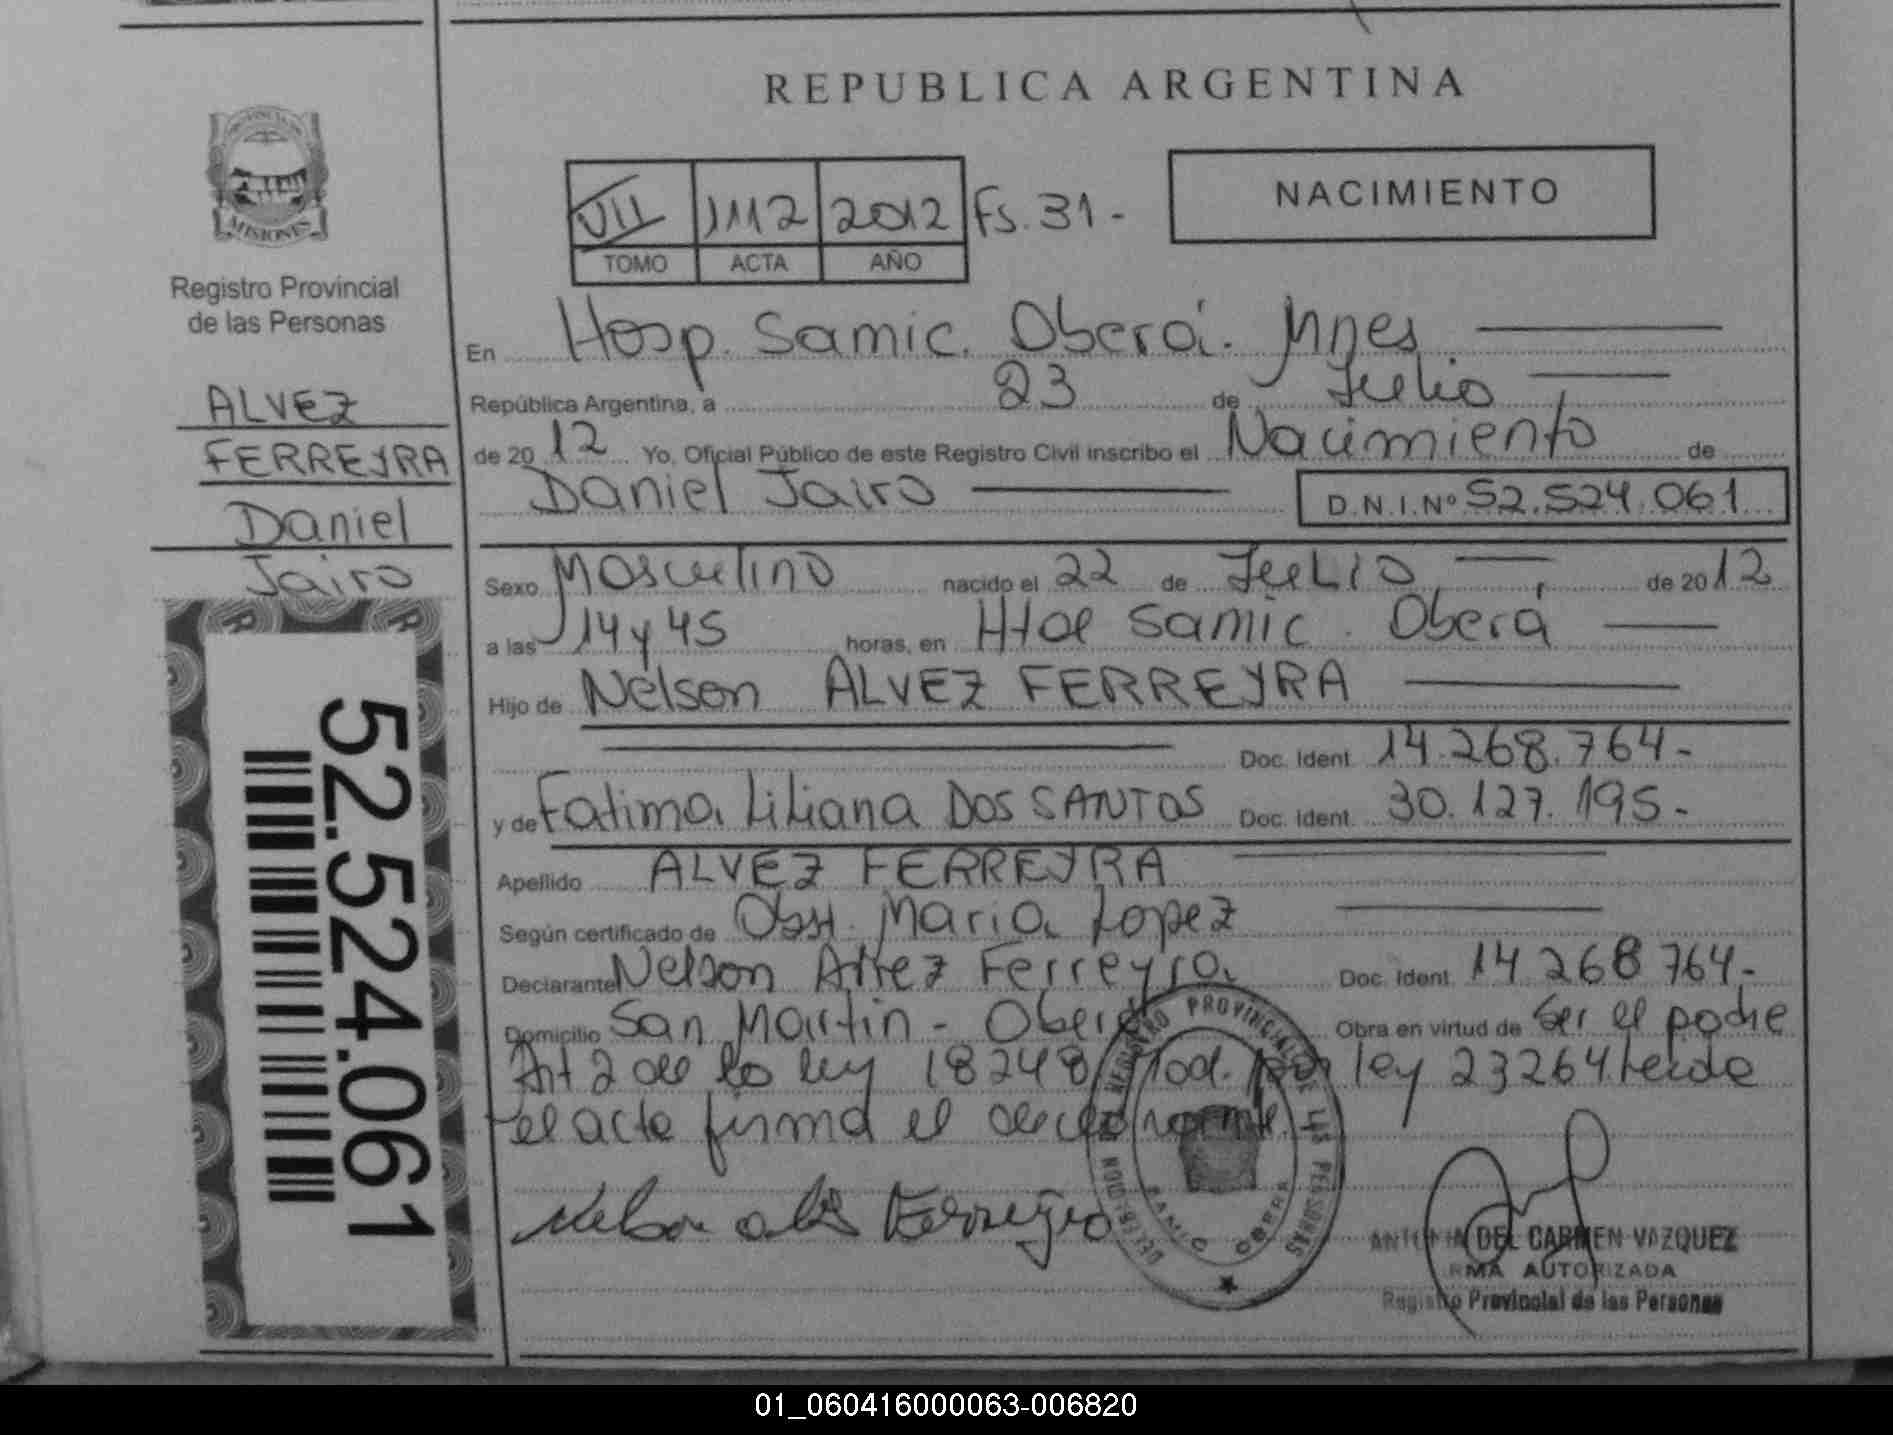 REPUBLICA ARGENTINA
MISIONES
Registro Provincial
de las Personas
ALVEZ
FERREYRA
Daniel
Jairo
52.524.061
VII 1112 2012 Fs. 31-
TOMO ACTA AÑO
NACIMIENTO
En Hosp. Samic. Oberá. Mnes
República Argentina, a 23 de Julio
de 2012 Yo, Oficial Público de este Registro Civil inscribo el Nacimiento de
Daniel Jairo D.N.I.Nº 52.524.061
Sexo Masculino nacido el 22 de Julio de 2012
a las 14 y 45 horas, en Htal Samic. Oberá
Hijo de Nelson ALVEZ FERREYRA
Doc. Ident. 14.268.764-
y de Fatima Liliana DOS SANTOS Doc. Ident. 30.127.195-
Apellido ALVEZ FERREYRA
Según certificado de Obst. Maria Lopez
Declarante Nelson Alvez Ferreyra Doc. Ident. 14 268 764-
Domicilio San Martin - Oberá Obra en virtud de Ser el padre
Art 2 de la ley 18248 Mod. por ley 23264. Leida
el acta firma el declarante.
REGISTRO PROVINCIAL DE LAS PERSONAS
DELEGACION
OBERA
DEL CARMEN VAZQUEZ
FIRMA AUTORIZADA
Registro Provincial de las Personas
01_060416000063-006820